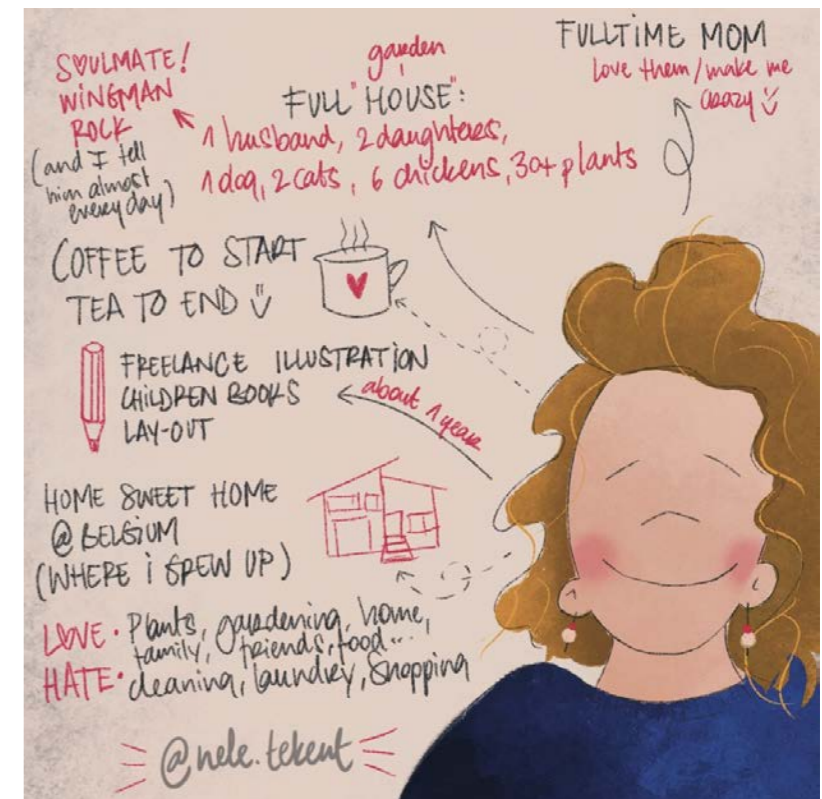 SOULMATE!
WINGMAN
ROCK
(and I tell
him almost
every day)
garden
FULL "HOUSE":
1 husband, 2 daughters,
1 dog, 2 cats, 6 chickens, 30+ plants
FULLTIME MOM
love them/make me
crazy
COFFEE TO START
TEA TO END
FREELANCE ILLUSTRATION
CHILDREN BOOKS
LAY-OUT
about 1 year
HOME SWEET HOME
@ BELGIUM
(WHERE i GREW UP)
LOVE • Plants, gardening, home,
family, friends, food...
HATE • cleaning, laundry, shopping
@nele.tekent